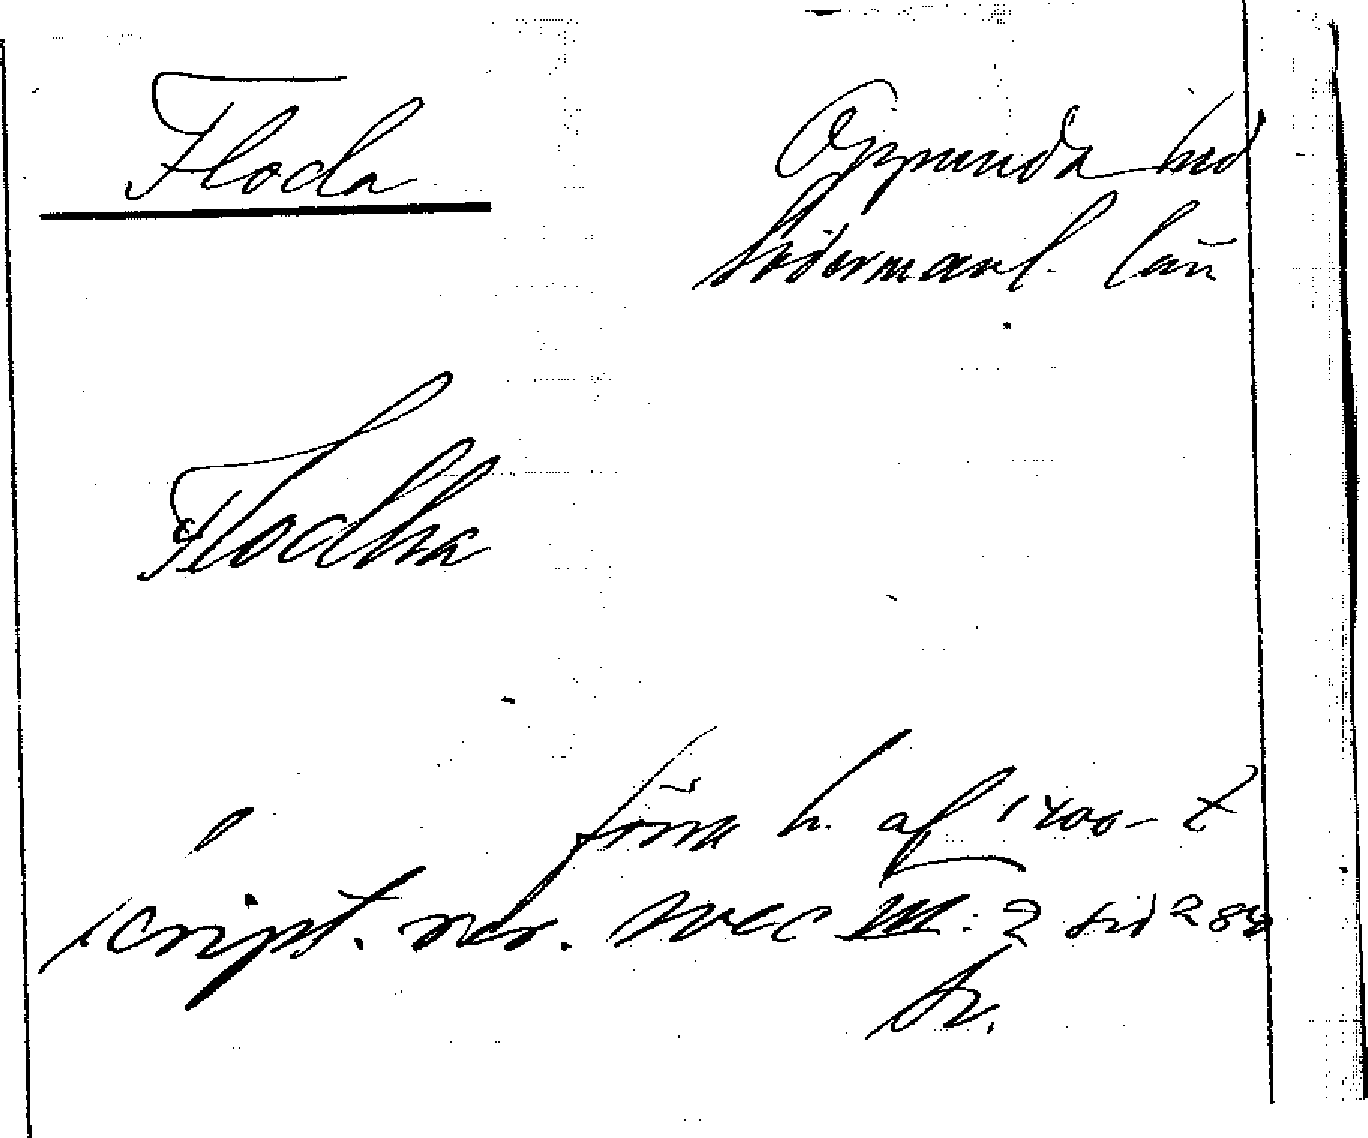 Floda Oppunda hd
Södermanl. län
Flodha
förra h. af 1400-t
script. rer. svec III: 2 sid 284
Sv.